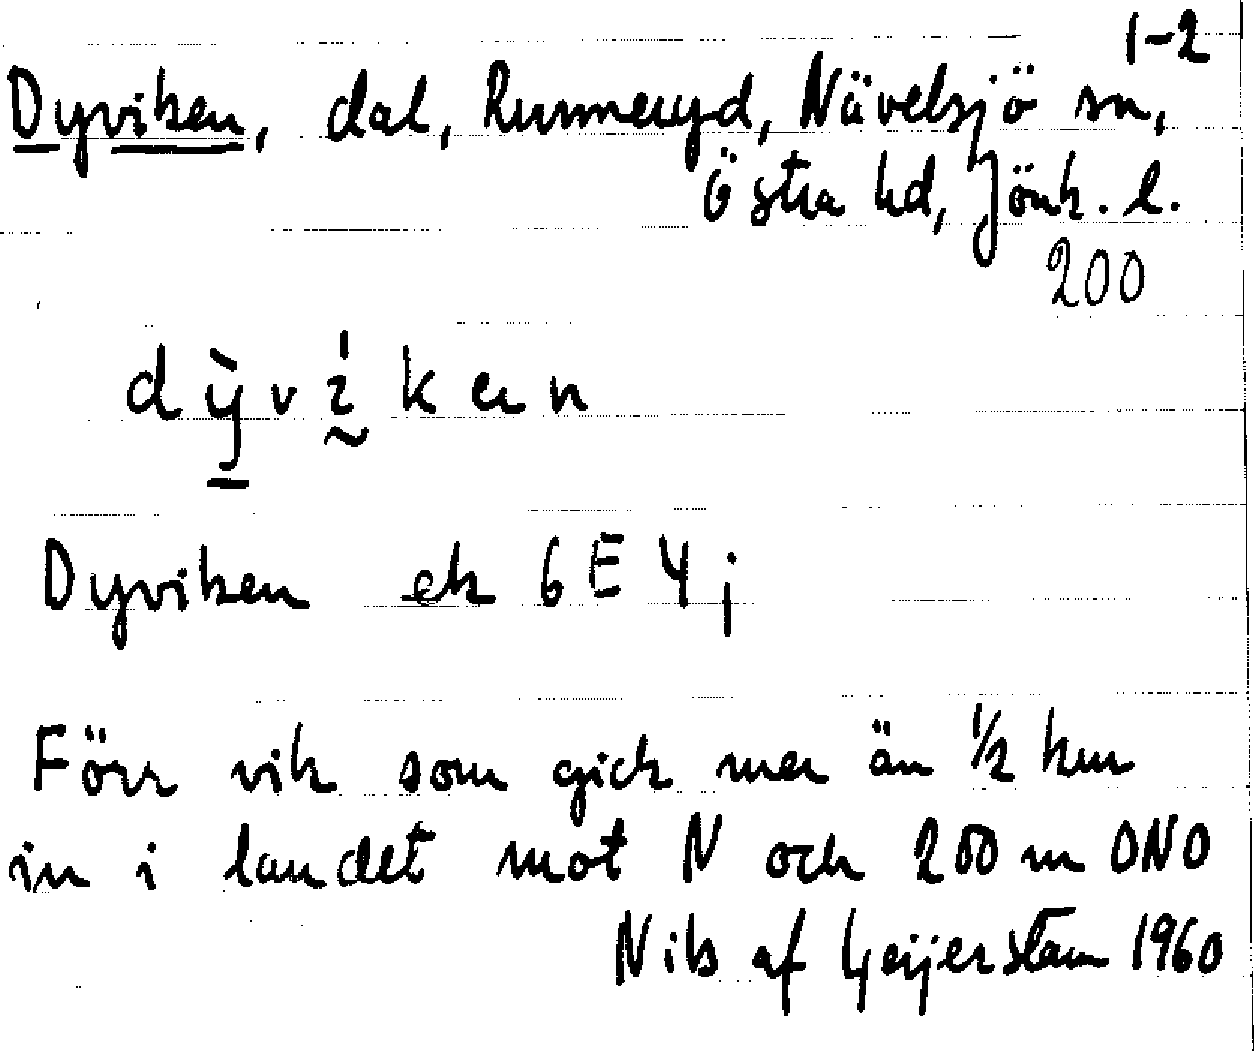 1-2
Dyviken, dal, Runneryd, Nävelsjö sn,
Östra hd, Jönk. l.
200
dỳ̠vı̰̍ken
Dyviken ek 6E4j
Förr vik som gick mer än ½ km
in i landet mot N och 200 m ONO
Nils af Geijerstam 1960